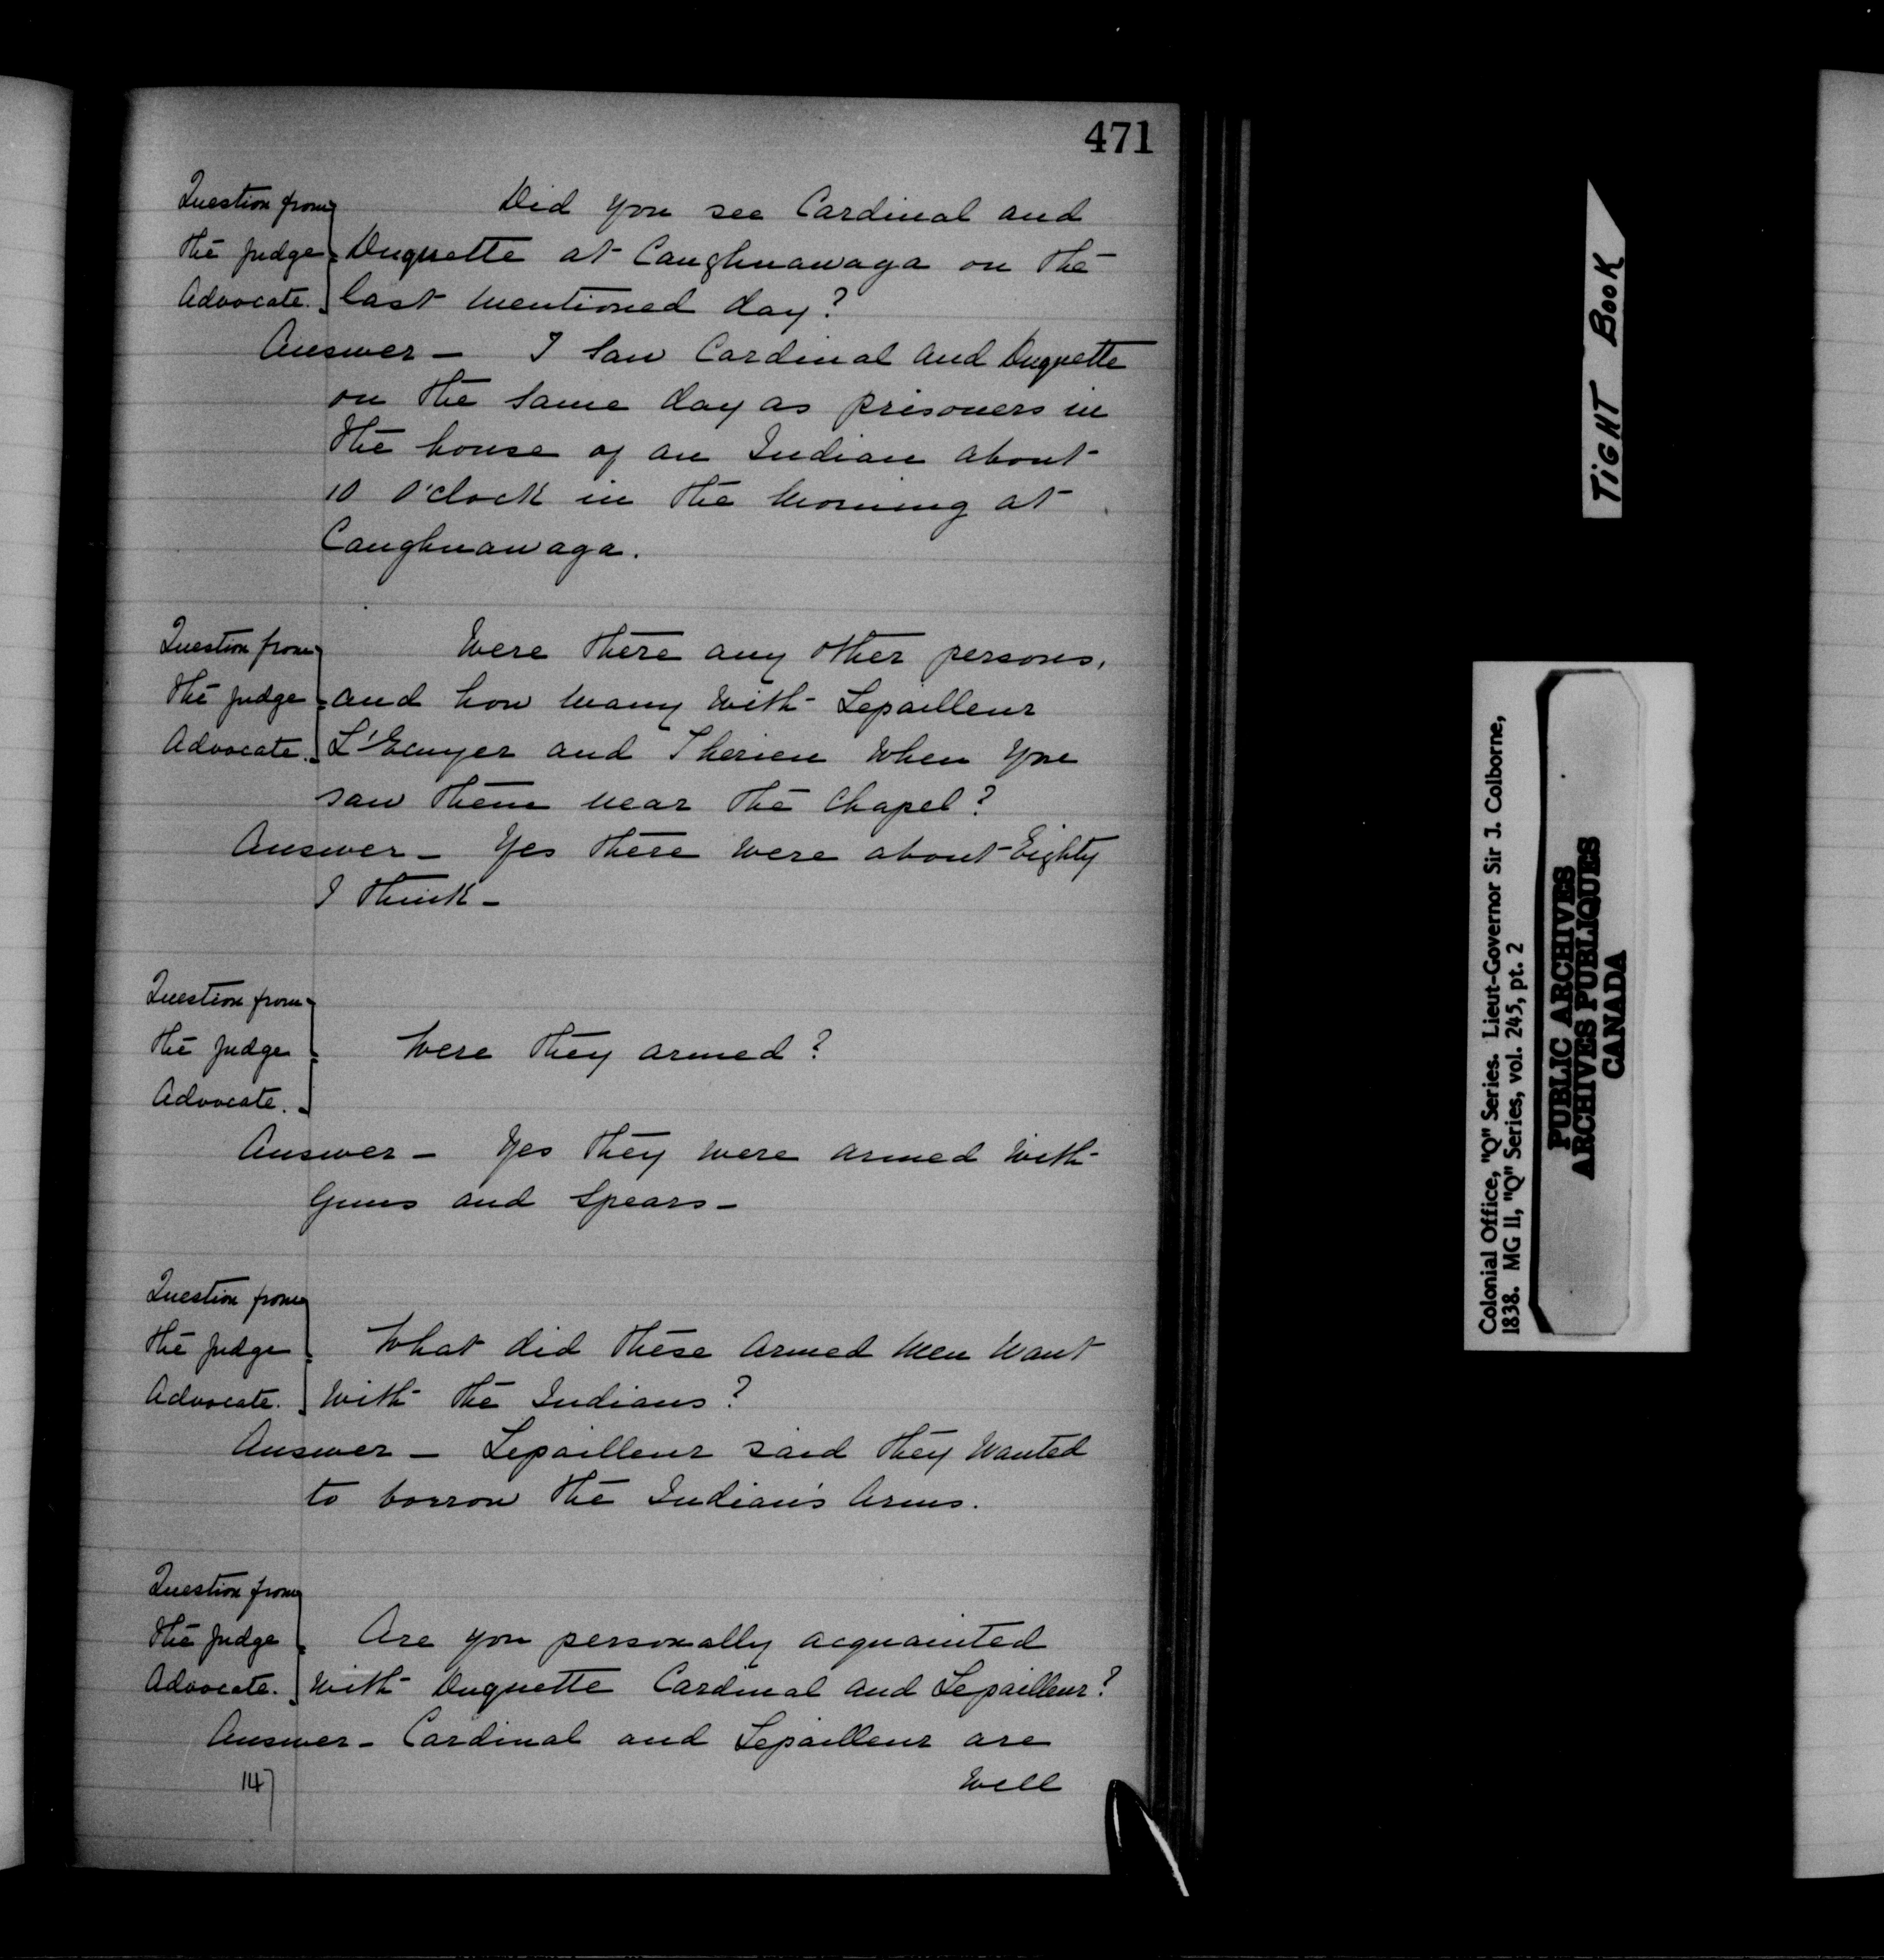 471
Question from
the Judge
Advocate.
Did you see Cardinal and
Duquette at Caughnawaga on the
last mentioned day?
Answer — I saw Cardinal and Duquette
on the same day as prisoners in
the house of an Indian about
10 O'clock in the morning at
Caughnawaga.
Question from
the Judge
Advocate.
Were there any other persons,
and how many with Lepailleur
L'Ecuyer and Therien when you
saw them near the Chapel?
Answer — Yes there were about Eighty
I think —
Question from
the Judge
Advocate.
Were they armed?
Answer — Yes they were armed with
Guns and Spears —
Question from
the Judge
Advocate.
What did these armed men want
with the Indians?
Answer — Lepailleur said they wanted
to borrow the Indian's Arms.
Question from
the Judge
Advocate.
Are you personally acquainted
with Duquette Cardinal and Lepailleur?
Answer — Cardinal and Lepailleur are
147
well
TIGHT BOOK
Colonial Office, "Q" Series. Lieut-Governor Sir J. Colborne,
1838. MG 11, "Q" Series, vol. 245, pt. 2
PUBLIC ARCHIVES
ARCHIVES PUBLIQUES
CANADA